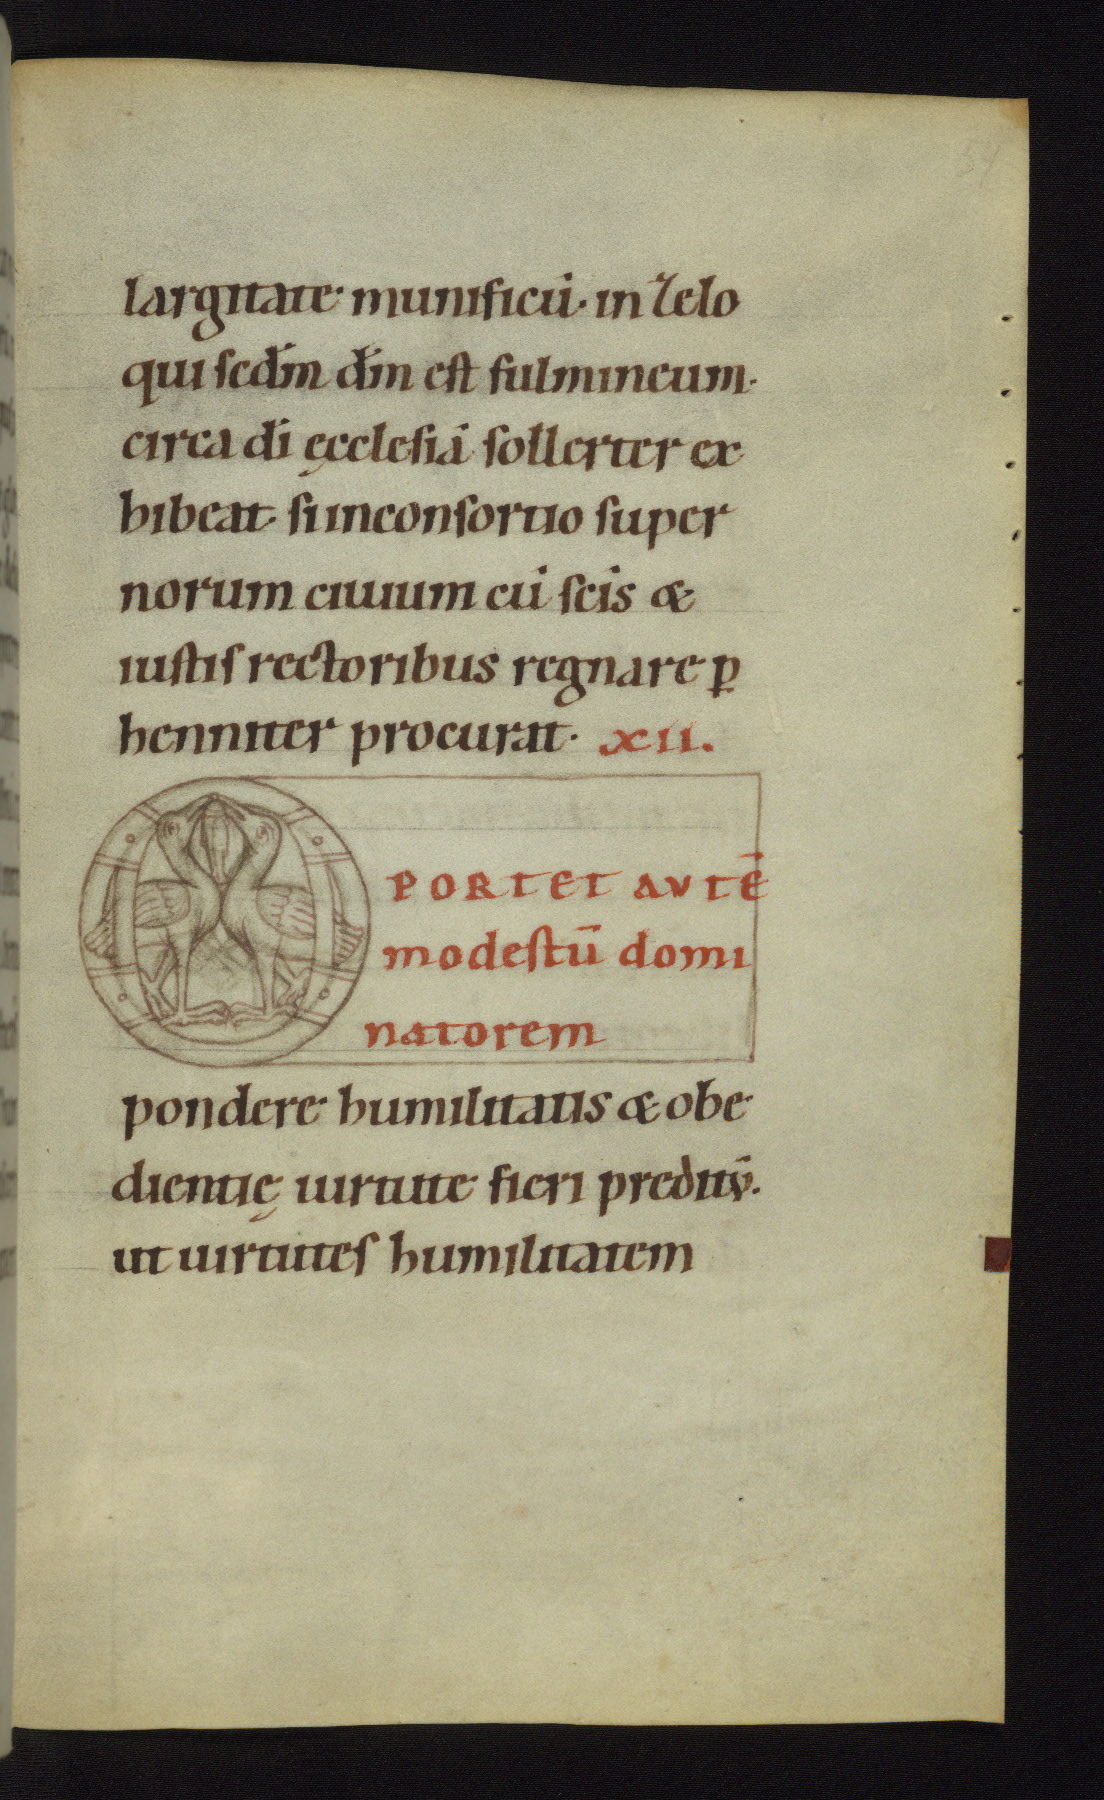 largitate· munificū· in zelo
qui scd̄m dm̄ est fulmineum·
circa dī ęcclesiā sollerter ex
hibeat· si inconsortio super
norum ciuium cū scīs &
iustis rectoribus regnare p̱
henniter procurat· XII.
OPORTET AVTĒ
modestū domi
natorem
pondere humilitatis & obe
dientię uirtute fieri preditū.
ut uirtutes humilitatem